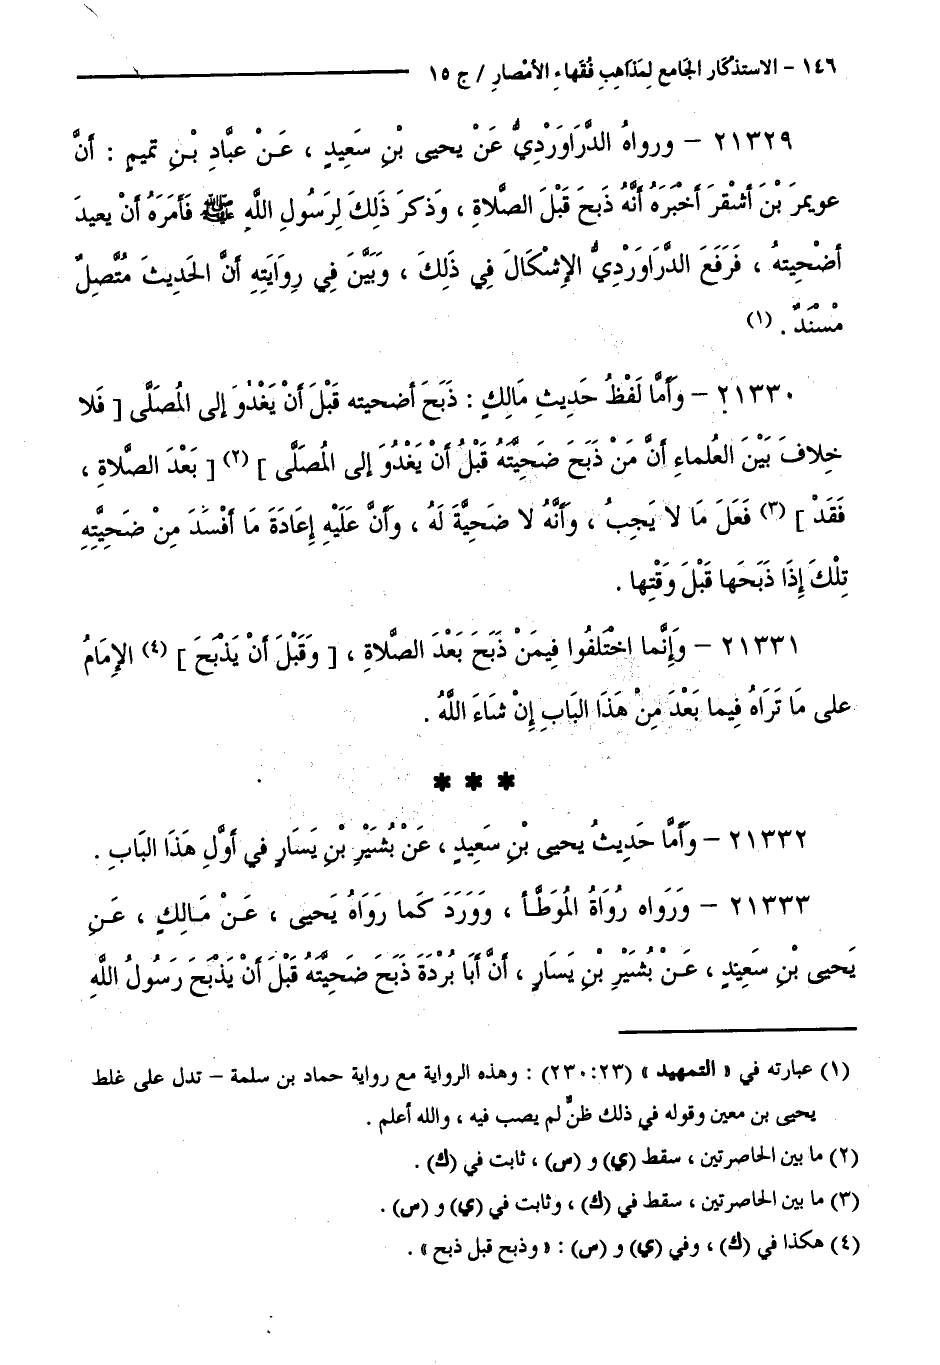 ١٤٦ - الاستذكار الجامع لِمَذَاهِبِ فُقَهاءِ الأمْصارِ / ج ١٥
٢١٣٢٩ - ورواهُ الدَّرَاوَرْدِيُّ عَنْ يحيى بْنِ سَعِيدٍ ، عَنْ عبَّادِ بْنِ تميمٍ : أنَّ
عويمرَ بْنَ أشْقرَ أخْبَرَهُ أنَّهُ ذَبحَ قَبْلَ الصلاةِ ، وَذكرَ ذَلِكَ لِرَسُولِ اللَّهِ ﷺ فَأمَرَهُ أنْ يعيدَ
أضْحِيتهُ ، فَرَفَعَ الدَّرَاوَرْدِيُّ الإشْكَالَ فِي ذَلِكَ ، وَبَيَّنَ فِي رِوَايَتِهِ أنَّ الحَدِيثَ مُتَّصِلٌ
مُسْنَدٌ . (١)
٢١٣٣٠ - وَأمَّا لَفْظُ حَدِيثِ مَالِكٍ : ذَبَحَ أضحيته قَبْلَ أنْ يَغْدُوَ إلى المُصَلَّى [ فَلا
خِلافَ بَيْنَ العُلماءِ أنَّ مَنْ ذَبَحَ ضَحِيَّتَهُ قَبْلُ أنْ يَغْدُوَ إلى المُصَلَّى ] (٢) [ بَعْدَ الصلاةِ ،
فَقَدْ ] (٣) فَعَلَ مَا لا يَجِبُ ، وَأنَّهُ لا ضَحِيَّةَ لَهُ ، وَأنَّ عَلَيْهِ إعَادَةَ مَا أفْسَدَ مِنْ ضَحِيَّتِهِ
تِلْكَ إذَا ذَبَحَها قَبْلَ وَقْتِها .
٢١٣٣١ - وَإنَّما اخْتَلَفُوا فِيمَنْ ذَبَحَ بَعْدَ الصَّلاةِ ، [ وَقَبْلَ أنْ يَذْبَحَ ] (٤) الإمَامُ
على مَا تَرَاهُ فِيما بَعْدَ مِنْ هَذَا البَابِ إنْ شَاءَ اللَّهُ .
* * *
٢١٣٣٢ - وَأمَّا حَدِيثُ يحيى بْنِ سَعِيدٍ ، عَنْ بُشَيْرِ بْنِ يَسَارٍ في أوَّلِ هَذَا البَابِ .
٢١٣٣٣ - وَرَواه رُوَاةُ المُوَطَّأ ، وَوَرَدَ كَما رَوَاهُ يَحيى ، عَنْ مَالِكٍ ، عَنِ
يَحيى بْنِ سَعِيدٍ ، عَنْ بُشَيْرِ بْنِ يَسَارٍ ، أنَّ أبَا بُرْدَةَ ذَبَحَ ضَحِيَّتَهُ قَبْلَ أنْ يَذْبَحَ رَسُولُ اللَّهِ
(١) عبارته في « التمهيد » (٢٣٠:٢٣) : وهذه الرواية مع رواية حماد بن سلمة - تدل على غلط
يحيى بن معين وقوله في ذلك ظنٌّ لم يصب فيه ، والله أعلم .
(٢) ما بين الحاصرتين ، سقط (ي) و (س) ، ثابت في (ك) .
(٣) ما بين الحاصرتين ، سقط في (ك) ، وثابت في (ي) و (س) .
(٤) هكذا في (ك) ، وفي (ي) و (س) : « وذبح قبل ذبح » .